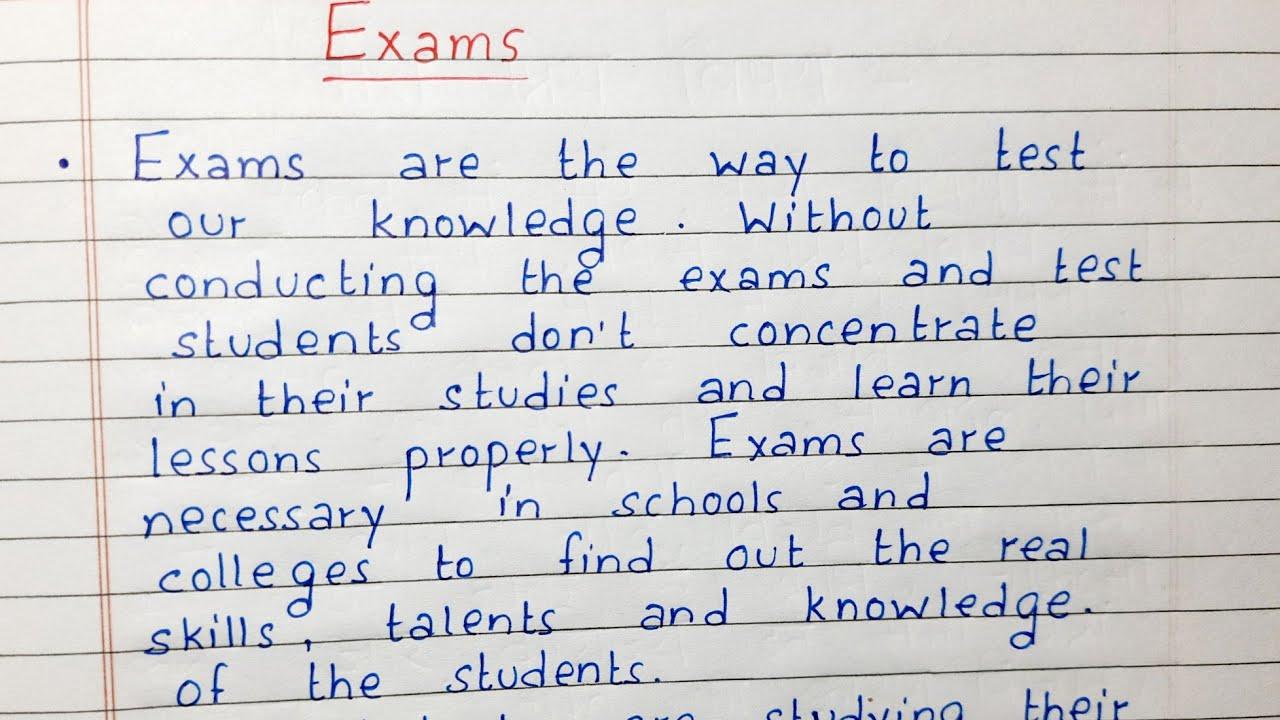 Exams
. Exams are the way to test
our knowledge. Without
conducting the exams and test
students don't concentrate
in their studies and learn their
lessons properly. Exams are
necessary in schools and
colleges to find out the real
skills, talents and knowledge.
of the students.
are studying their